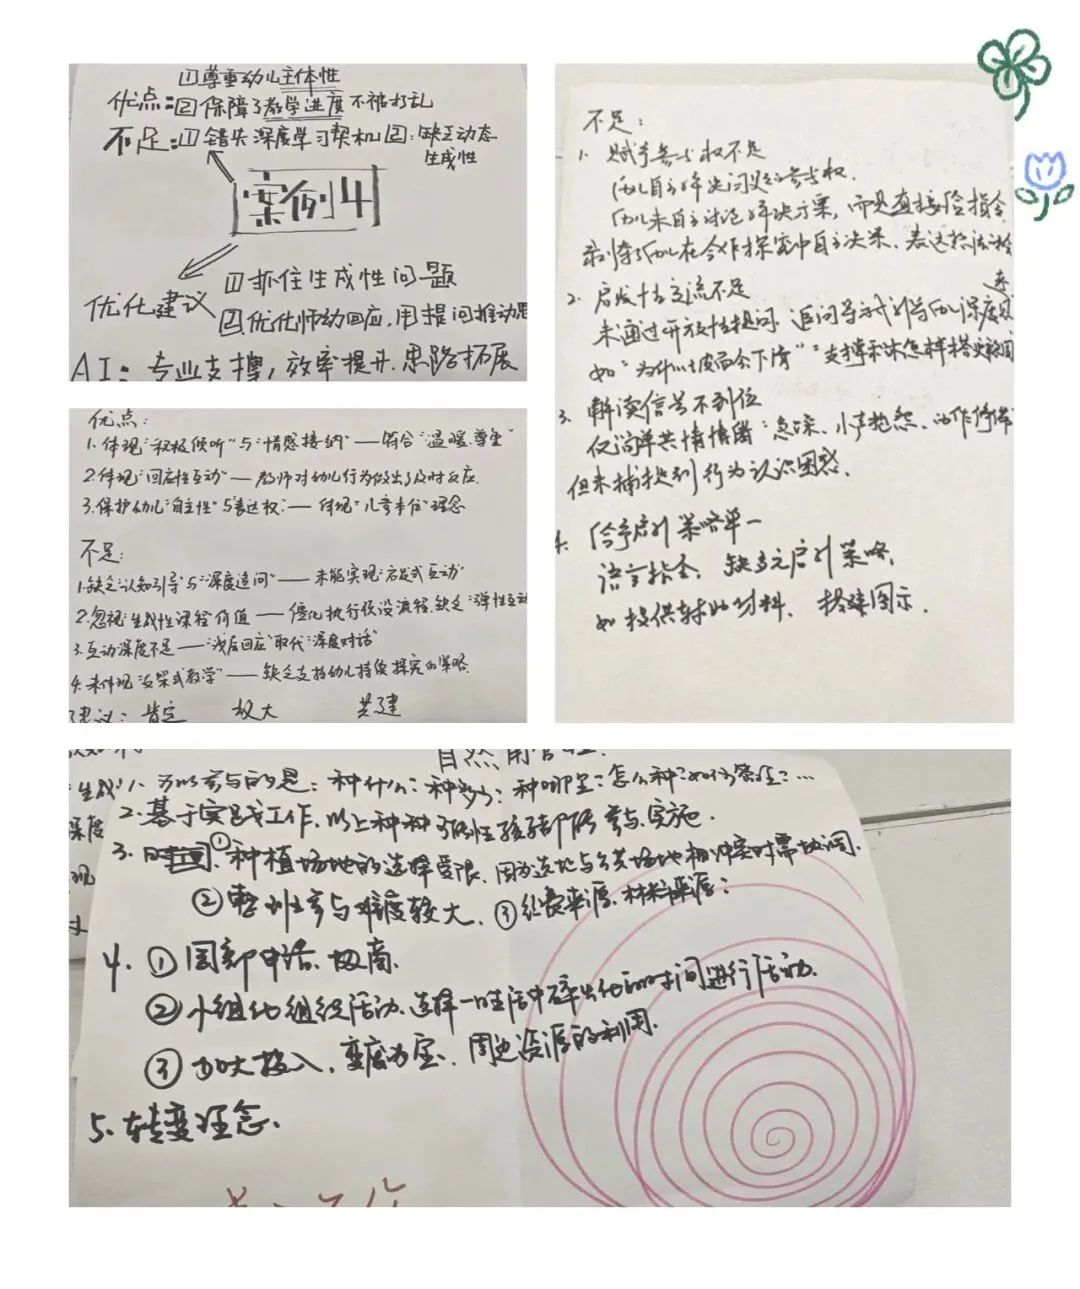 ①尊重幼儿主体性
优点：②保障了教学进度不被打乱
不足：①错失深度学习契机②：缺乏动态
生成性
案例4
优化建议
①抓住生成性问题
②优化师幼回应，用提问推动思
AI：专业支撑，效率提升、思路拓展
优点：
1.体现“积极倾听”与“情感接纳”——符合“温暖、尊重”
2.体现“回应性互动”——教师对幼儿行为做出了及时反应.
3.保护幼儿“自主性”与表达权：——体现“儿童本位”理念
不足：
1.缺乏“认知引导”与“深度追问”——未能实现“启发式互动”
2.忽视“生成性课程”价值——僵化执行预设流程，缺乏“弹性互动
3.互动深度不足——“浅层回应”取代“深度对话”
4.未体现“支架式教学”——缺乏支持幼儿持续探究的策略.
建议：肯定 放大 共建
不足：
1、赋予参与权不足
幼儿自主解决问题之参与权.
幼儿未自主讨论解决方案，而是直接给指令
剥夺了幼儿在合作探究中自主决策、表达想法
2、启发性交流不足
未通过开放性提问、追问等方式引导幼儿深度思
如“为什么坡面会下滑”“支撑积木怎样搭更稳固
3、解读信号不到位
仅简单共情情绪：急躁、小声抱怨、动作停滞
但未捕捉到行为认识困惑.
4. 给予启引策略单一
语言指令，缺多元启引策略.
如提供辅助材料、搭建图示.
自然
1、可以参与的是：种什么？种多少？种哪里？怎么种？如何管理？…
2.基于实践工作，以上种种可能性孩子都能够参与、实施.
3. ①种植场地的选择受限，因为选址与公共场地相冲突时需协调.
②整班参与难度较大、③经费来源、材料来源；
4. ①园部申请、协商.
②小组化组织活动、选择一日生活中碎片化的时间进行活动.
③加大投入，变废为宝、周边资源的利用.
5.转变理念.